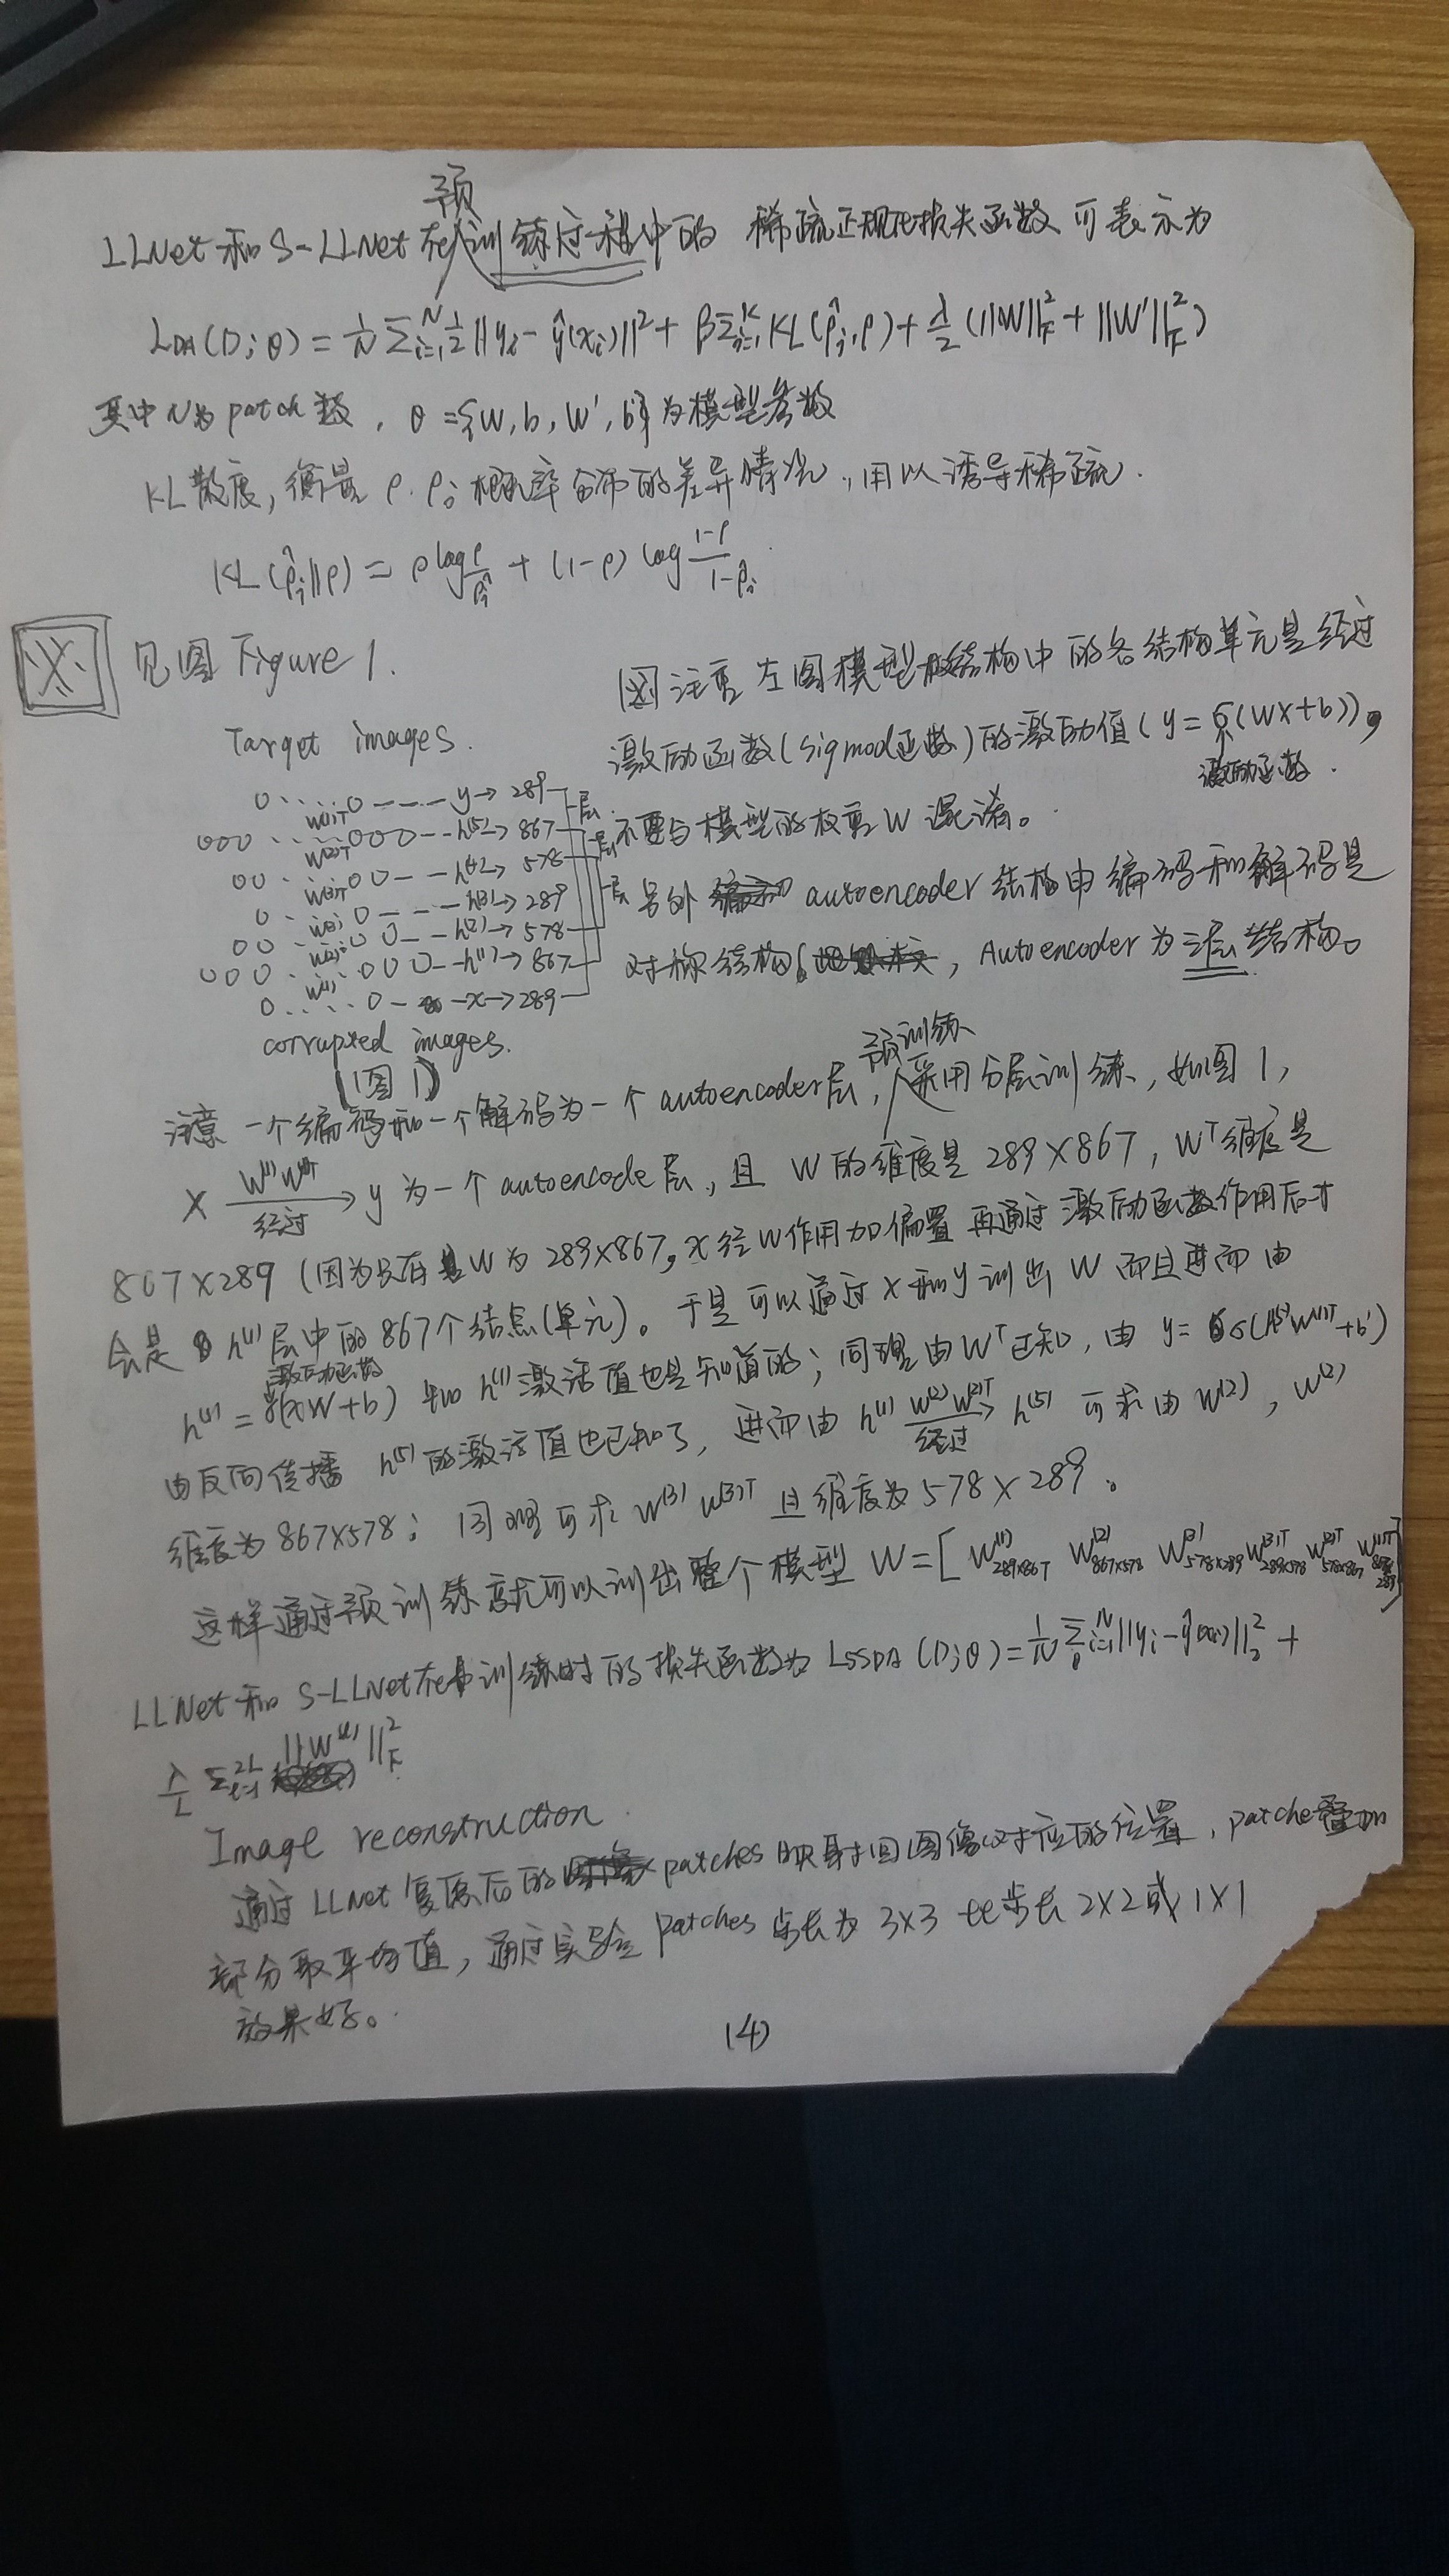 预
LLNet和S-LLNet在训练过程中的 稀疏正规化损失函数可表示为
L_DA(D;θ) = 1/N Σ_{i=1}^N 1/2 ||y_i - ŷ(x_i)||² + βΣ_{j=1}^K KL(ρ̂_j, ρ) + λ/2 (||W||_F² + ||W'||_F²)
其中N为patch数, θ={W, b, W', b'}为模型参数
KL散度, 衡量ρ. ρ̂_j 概率分布的差异情况, 用以诱导稀疏.
KL(ρ̂_j||ρ) = ρ log ρ/ρ̂_j + (1-ρ) log (1-ρ)/(1-ρ̂_j)
见图Figure 1.
Target images.
0 ·· W(1)T 0 --- y→ 289
000 ·· W(2)T 000 -- h(5)→ 867
00 · W(3)T 00 -- h(4)→ 578
0 · W(3) 0 --- h(3)→ 289
00 · W(2) 00 -- h(2)→ 578
000 · W(1) ·000 -- h(1)→ 867
0 .... 0 - -x→289
层
层
层
corrupted images.
(图1)
注意左图模型结构中的各结构单元是经过
激励函数(sigmod函数)的激励值(y=σ(Wx+b)),
激励函数.
不要与模型的权重W混淆。
另外 autoencoder 结构中编码和解码是
对称结构, Autoencoder为三层结构。
预训练
注意 一个编码和一个解码为一个autoencoder层, 采用分层训练, 如图1,
X W(1)W(1)T 经过 → y 为一个autoencode层, 且 W的维度是289×867, W^T维度是
867×289 (因为只有W为289×867, x经W作用加偏置再通过激励函数作用后才
会是h(1)层中的867个结点(单元)。于是可以通过x和y训出W而且进而由
激励函数
h(1) = σ(xW+b) 知h(1)激活值也是知道的; 同理由W^T已知, 由 y=σ(h(5)W(1)T+b')
由反向传播 h(5)的激活值也已知了, 进而由 h(1) W(2)W(2)T 经过 → h(5) 可求出W(2), W(2)
维度为867×578; 同理可求W(3) W(3)T 且维度为578×289。
这样通过预训练就可以训出整个模型 W=[W(1)_289×867 W(2)_867×578 W(3)_578×289 W(3)T_289×578 W(2)T_578×867 W(1)T_867×289]
LLNet和S-LLNet在训练时的损失函数为 L_SSDA(D;θ) = 1/N Σ_{i=1}^N ||y_i - ŷ(x_i)||_2² +
λ/L Σ_{l=1}^{2L} ||W^(l)||_F²
Image reconstruction.
通过LLNet复原后的patches映射回图像对应的位置, patche叠加
部分取平均值, 通过实验patches步长为3×3比步长2×2或1×1
效果好。
(4)